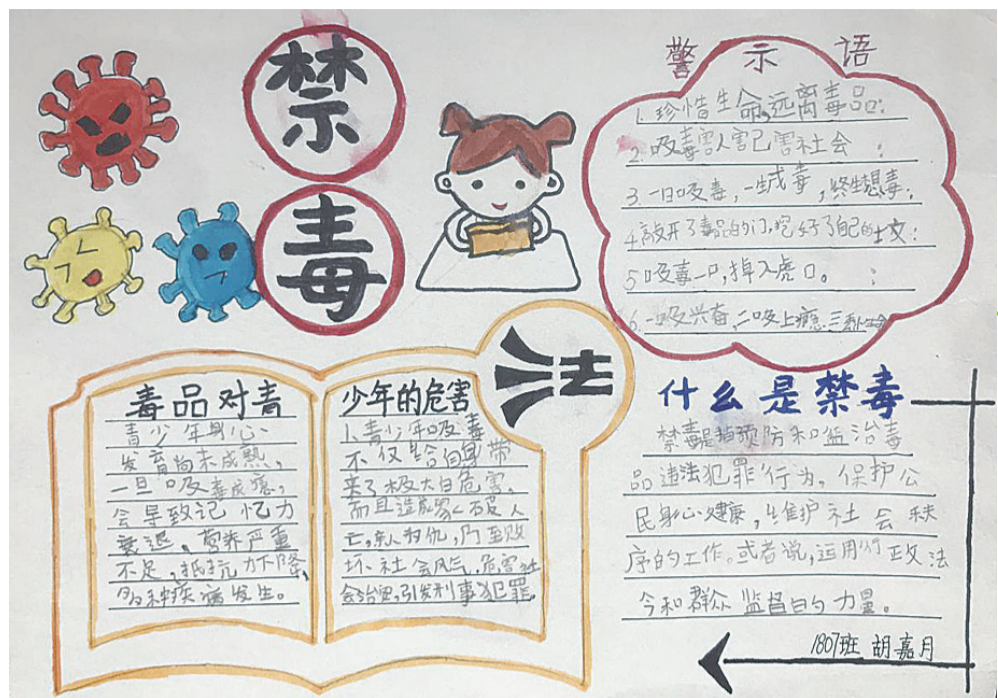 禁
毒
法
警示语
1.珍惜生命,远离毒品;
2.吸毒害人害己害社会;
3.一日吸毒,一生戒毒,终生想毒;
4.敲开了毒品的门,挖好了自己的坟;
5.吸毒一口,掉入虎口。;
6.一吸兴奋,二吸上瘾,三
毒品对青
青少年身心
发育尚未成熟,
一旦吸毒成瘾,
会导致记忆力
衰退、营养严重
不足,抵抗力下降,
多种疾病发生。
少年的危害
1.青少年吸毒
不仅给自身带
来了极大白危害,
而且造成家破人
亡,亲人为仇,乃至败
坏社会风气,危害社
会治安,引发刑事犯罪。
什么是禁毒
禁毒是指预防和监治毒
品违法犯罪行为,保护公
民身心健康,维护社会秩
序的工作。或者说,运用行政法
令和群众监督白勺力量。
1807班 胡嘉月